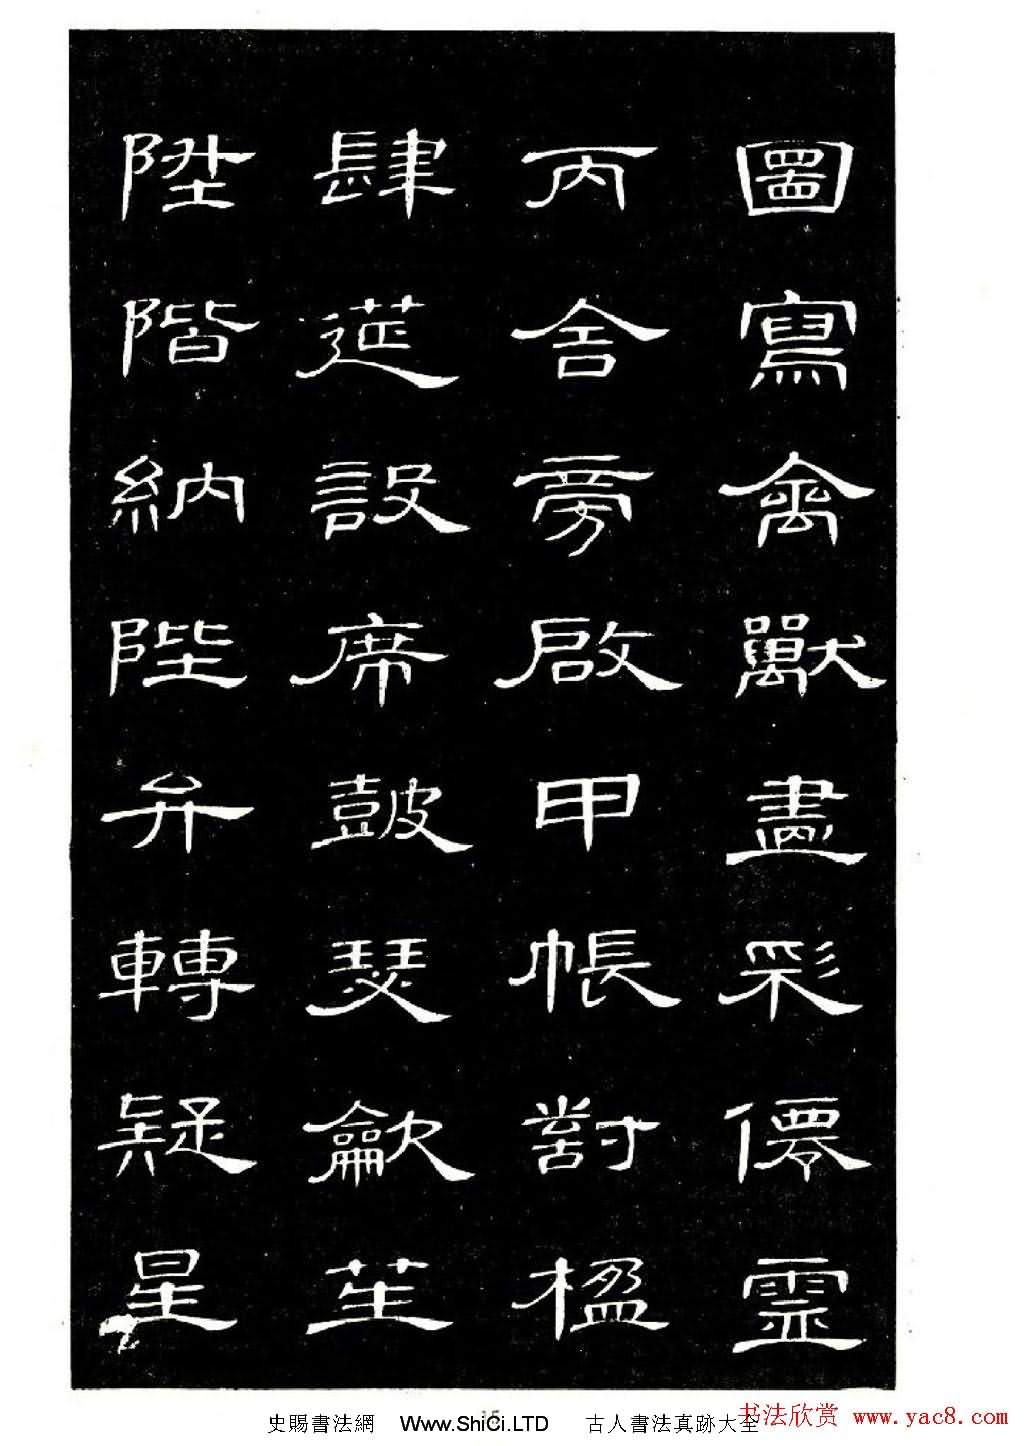 圖寫禽獸畫彩僊靈
丙舍旁啟甲帳對楹
肆莚設席鼓瑟龡笙
陞階納陛弁轉疑星
15
史賜書法網 Www.ShiCi.LTD 古人書法真跡大全
书法欣赏 www.yac8.com